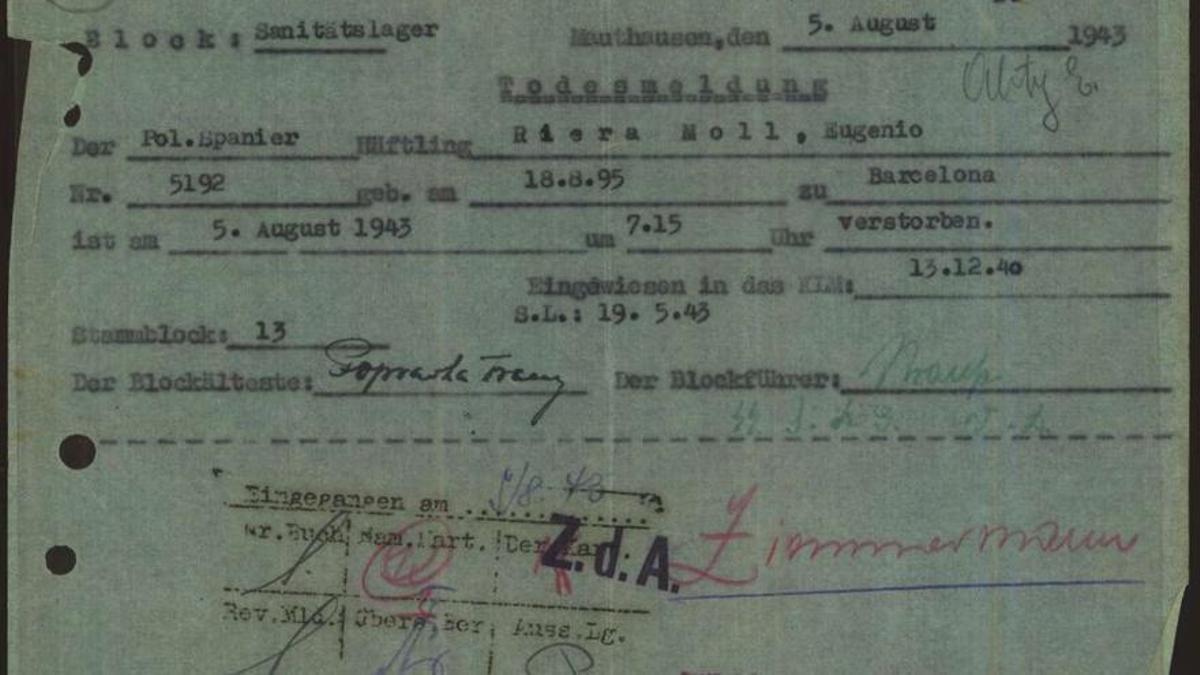 B l o c k : Sanitätslager Mauthausen,den 5. August 1943
T o d e s m e l d u n g
Der Pol.Spanier Häftling R i e r a M o l l , Eugenio
Nr. 5192 geb. am 18.8.95 zu Barcelona
ist am 5. August 1943 um 7.15 Uhr verstorben.
Eingewiesen in das KLM: 13.12.40
S.L.: 19. 5.43
Stammblock: 13
Der Blockälteste: Der Blockführer:
Eingegangen am 5/8 43
Nr.Buch Nam.Kart.
Z.d.A. Zimmermann
Rev.Mld. Auss.Lg.